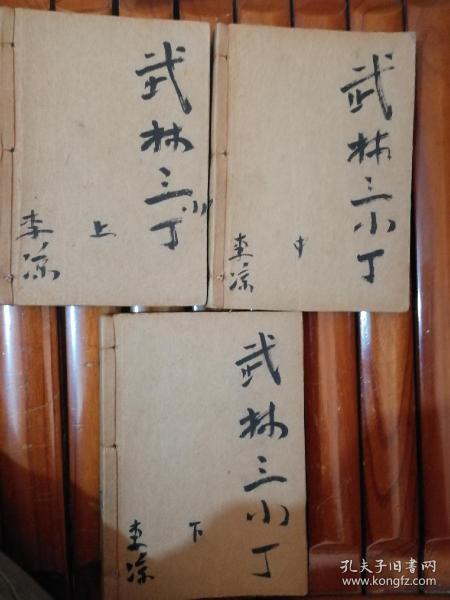 武林三小丁
上
李凉
武林三小丁
中
李凉
武林三小丁
下
李凉
孔夫子旧书网
www.kongfz.com